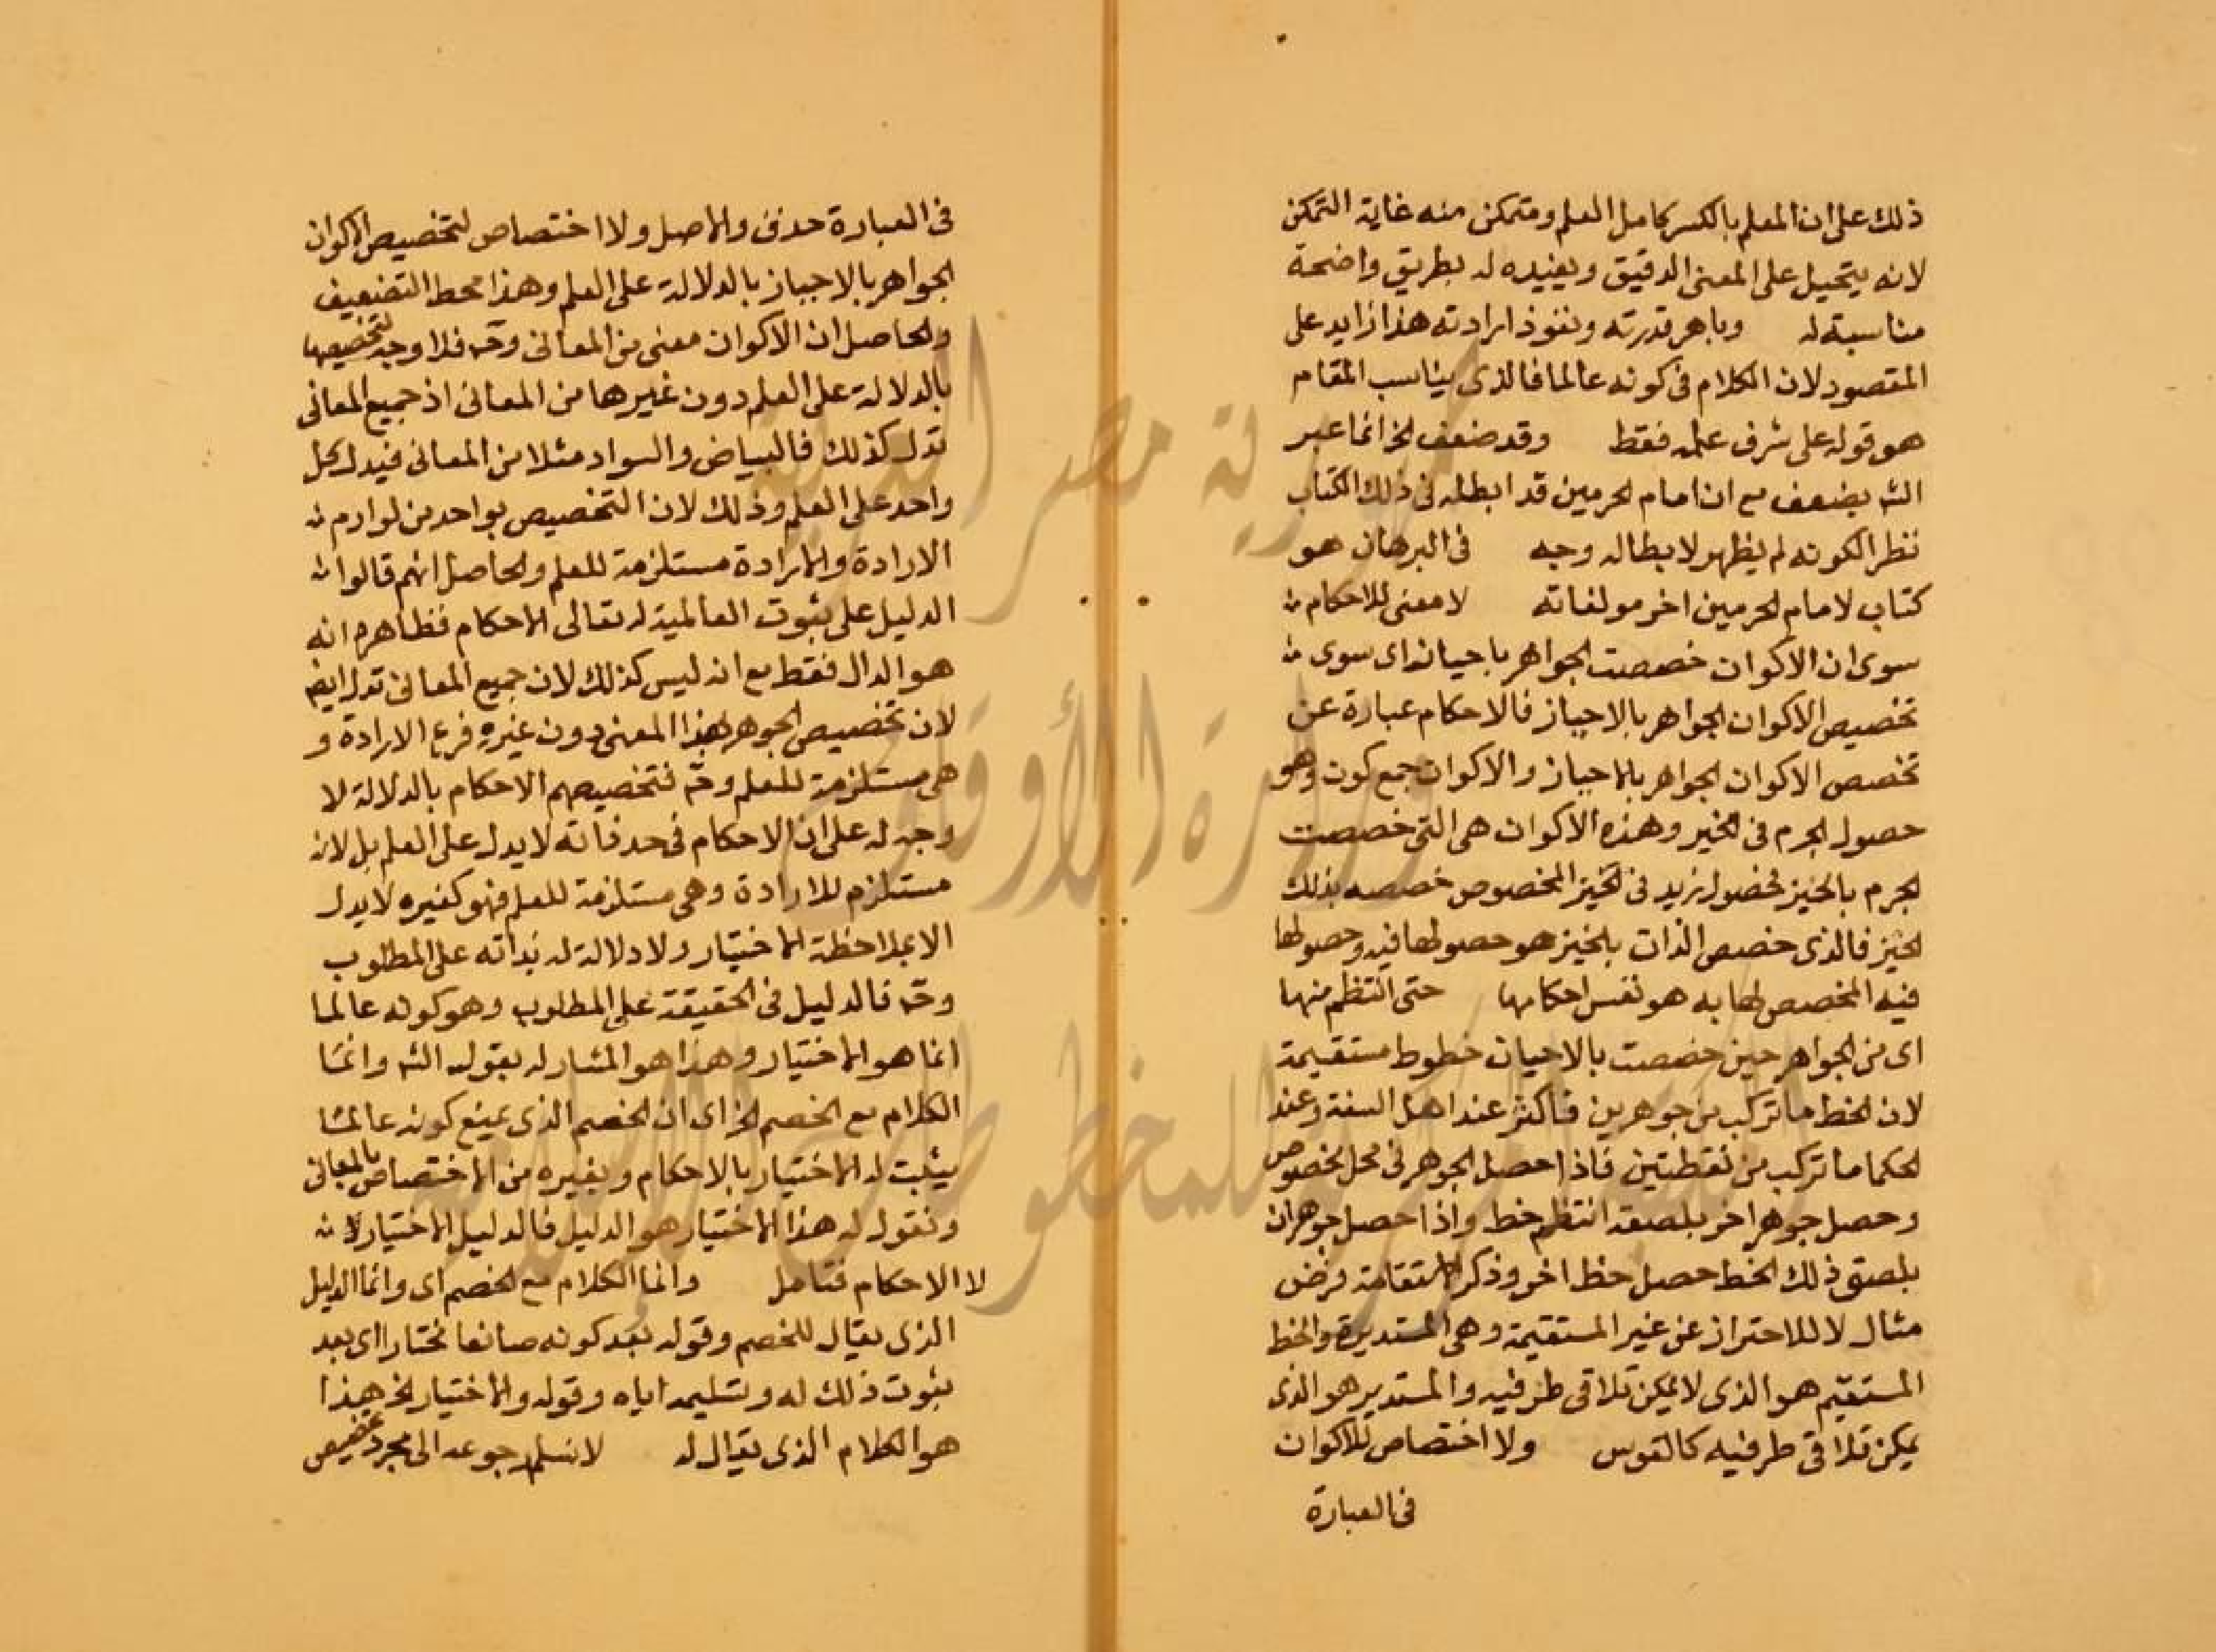 ذلك على ان المعلم بالكسر كامل العلم ومتمكن منه غاية التمكن
لانه يتحيل على المعنى الدقيق ويفيده له بطريق واضحة
مناسبة له وباهر قدرته ونفوذ ارادته هذا زايد على
المقصود لان الكلام فى كونه عالما فالذى يناسب المقام
هو قوله على شرف علمه فقط وقد ضعف الخ انما عبر
الشه بضعف مع ان امام الحرمين قد ابطله فى ذلك الكتاب
نظرا لكونه لم يظهر لابطاله وجه فى البرهان هو
كتاب لامام الحرمين اخر مولفاته لا معنى للاحكام
سوى ان الاكوان خصصت الجواهر باحيانه اى سوى
تخصيص الاكوان الجواهر بالاحياز فالاحكام عبارة عن
تخصص الاكوان الجواهر بالاحياز والاكوان جمع كون وهو
حصول الجرم فى الخير وهذه الاكوان هى التى خصصت
الجرم بالخيز فحصول زيد فى الخيز المخصوص خصصه بذلك
الحيز فالذى خصص الذات بالخيز هو حصولها فيه وحصولها
فيه المخصص لها به هو نفس احكامها حتى انتظم منها
اى من الجواهر حين خصصت بالاحيان خطوط مستقيمة
لان الخط ما تركب من جوهرين فاكثر عند اهل السنة وعند
الحكما ما تركب من نقطتين فاذا حصل الجوهر فى محل مخصوص
وحصل جوهر اخر بلصقه انتظم خط واذا حصل جوهران
بلصق ذلك الخط حصل خط اخر وذكر الاستقامة فرض
مثال لا للاحتراز عن غير المستقيمة وهى المستديرة والخط
المستقيم هو الذى لا يمكن تلاقى طرفيه والمستدير هو الذى
يمكن تلاقى طرفيه كالقوس ولا اختصاص للاكوان
فى العبارة
فى العبارة حذف والاصل ولا اختصاص لتخصيص الاكوان
الجواهر بالاحياز بالدلالة على العلم وهذا محط التضعيف
والحاصل ان الاكوان معنى من المعانى وح فلا وجه لتخصيصها
بالدلالة على العلم دون غيرها من المعانى اذ جميع المعانى
تدل كذلك فالبياض والسواد مثلا من المعانى فيدل كل
واحد على العلم وذلك لان التخصيص بواحد من لوازم
الارادة والارادة مستلزمة للعلم والحاصل انهم قالوا
الدليل على ثبوت العالمية له تعالى الاحكام فظاهره انه
هو الدال فقط مع انه ليس كذلك لان جميع المعانى تدل ايض
لان تخصيص الجوهر بهذا المعنى دون غيره فرع الارادة و
هى مستلزمة للعلم وح فتخصيصهم الاحكام بالدلالة لا
وجه له على ان الاحكام فى حد ذاته لا يدل على العلم بل لانه
مستلزم للارادة وهى مستلزمة للعلم فهو كغيره لا يدل
الا بملاحظة الاختيار ولا دلالة له بذاته على المطلوب
وح فالدليل فى الحقيقة على المطلوب وهو كونه عالما
انما هو الاختيار وهذا هو المشار له بقوله الشه وانما
الكلام مع الخصم الخ اى ان الخصم الذى يمنع كونه عالما
يثبت له الاختيار بالاحكام وبغيره من الاختصاص بالمعانى
ونقول له هذا الاختيار هو الدليل فالدليل الاختيار
لا الاحكام فتامل وانما الكلام مع الخصم اى وانما الدليل
الذى يقال للخصم وقوله بعد كونه صانعا مختارا اى بعد
ثبوت ذلك له وتسليمه اياه وقوله والاختيار الخ هذا
هو الكلام الذى يقال له لا نسلم رجوعه الى مجرد تخصيص
جمهورية مصر العربية
وزارة الأوقاف
المكتبة المركزية للمخطوطات الإسلامية